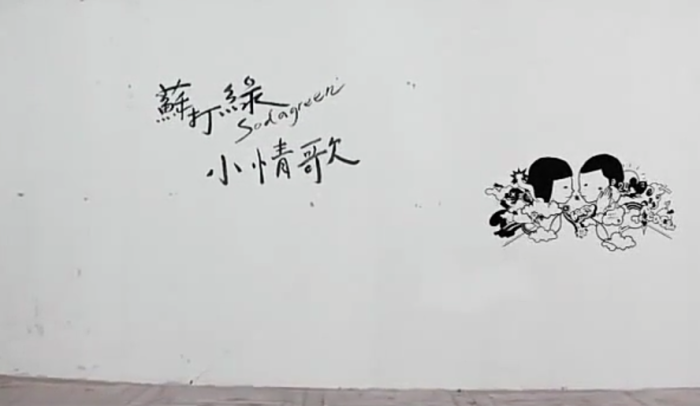 蘇打綠
Sodagreen
小情歌